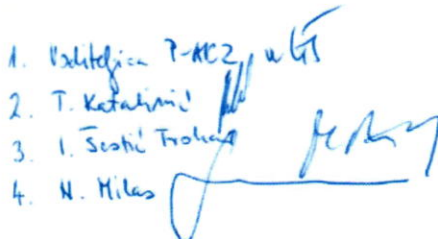 1. Voditeljica P-AKZ u GŠ
2. T. Katalinić
3. I. Šestić Trohar
4. N. Milas